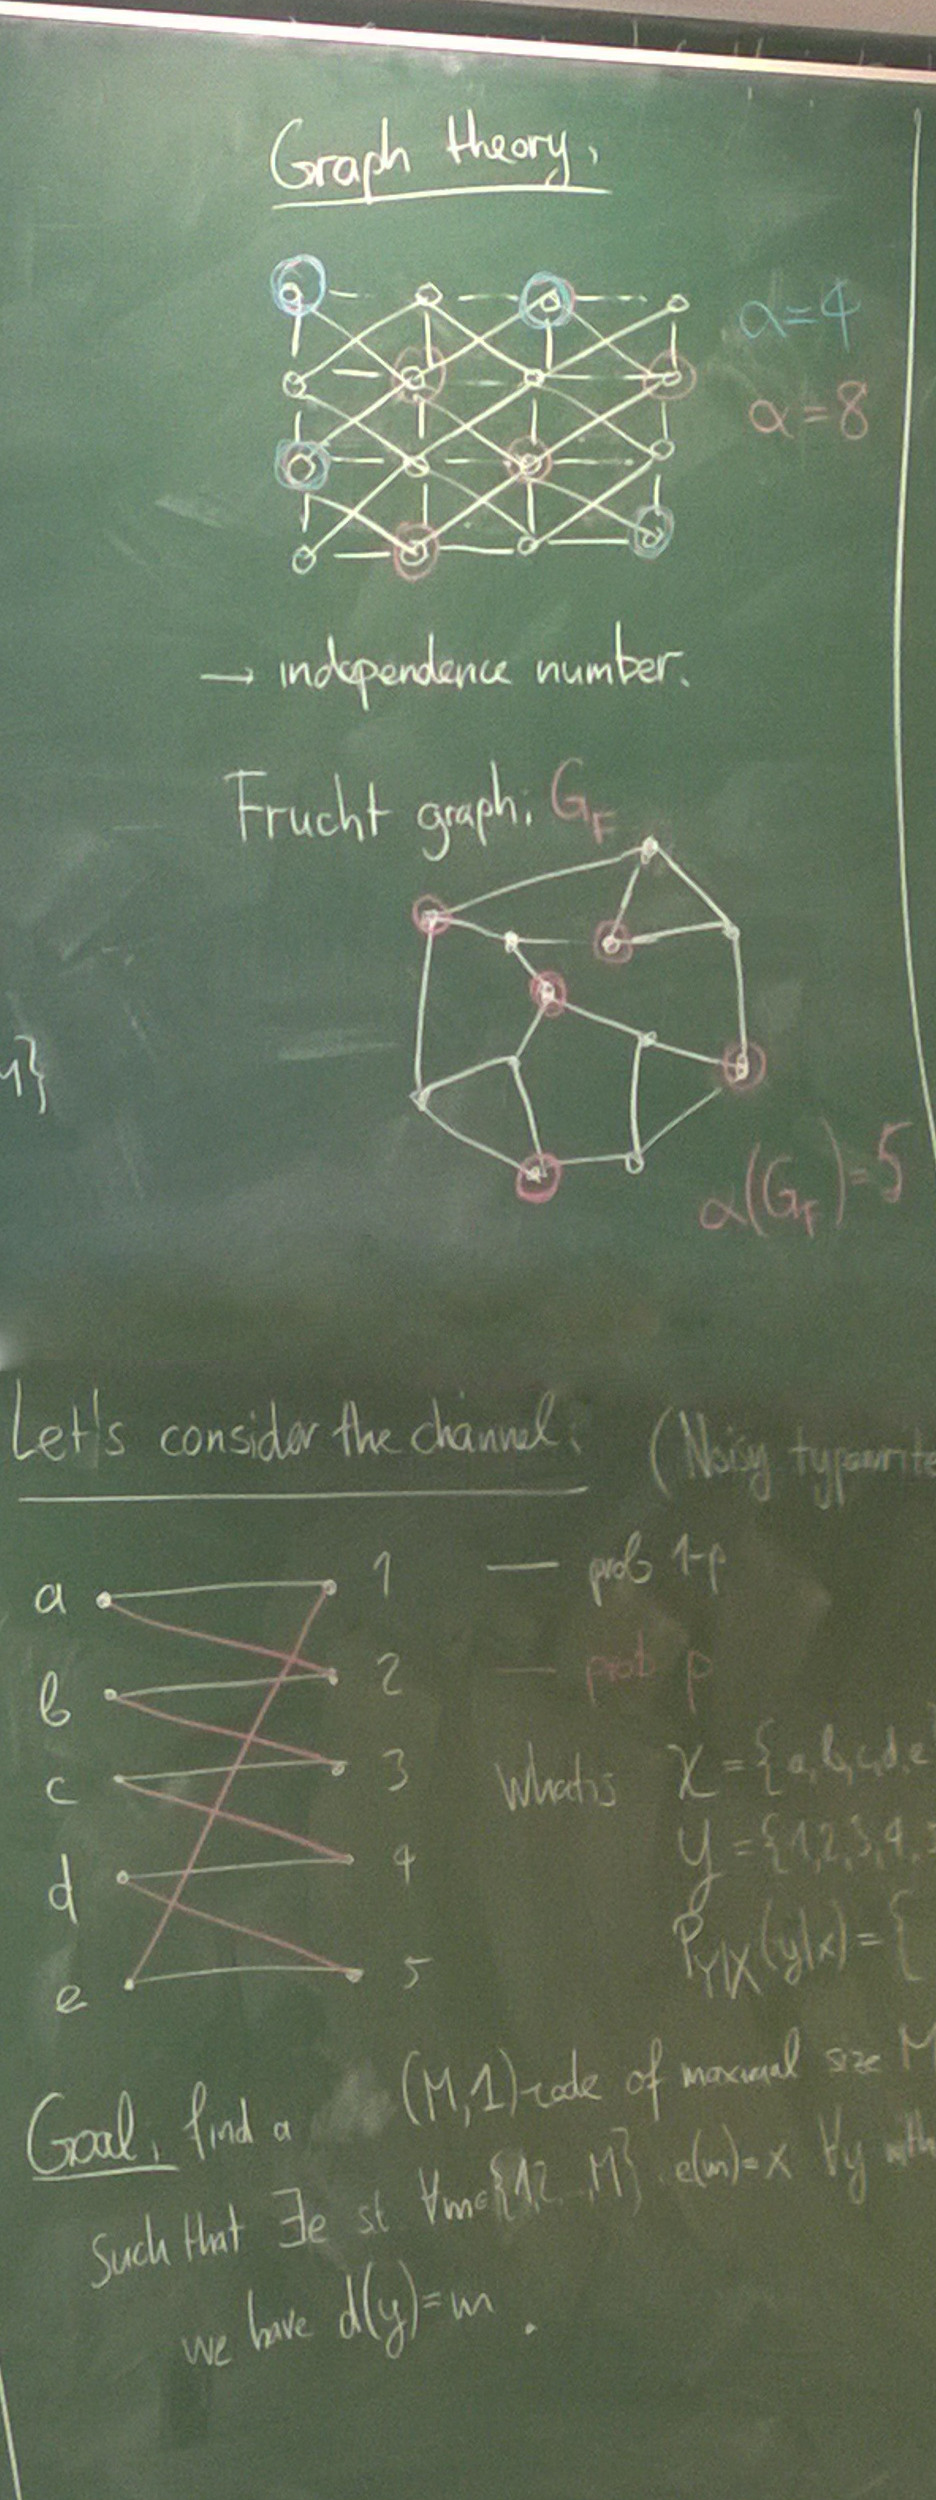 Graph theory.
α=4
α=8
→ independence number.
Frucht graph: G_F
1}
α(G_F)=5
Let's consider the channel: (Noisy typewrite
a 1 — prob 1-p
b 2 — prob p
c 3 What is X = {a,b,c,d,e}
d 4 Y = {1,2,3,4,
P_Y|X (y|x) = {
e 5
Goal: find a (M,1)-code of maximal size M
such that ∃e st ∀m∈{1,2,..,M} e(m)=x ∀y with
we have d(y)=m.